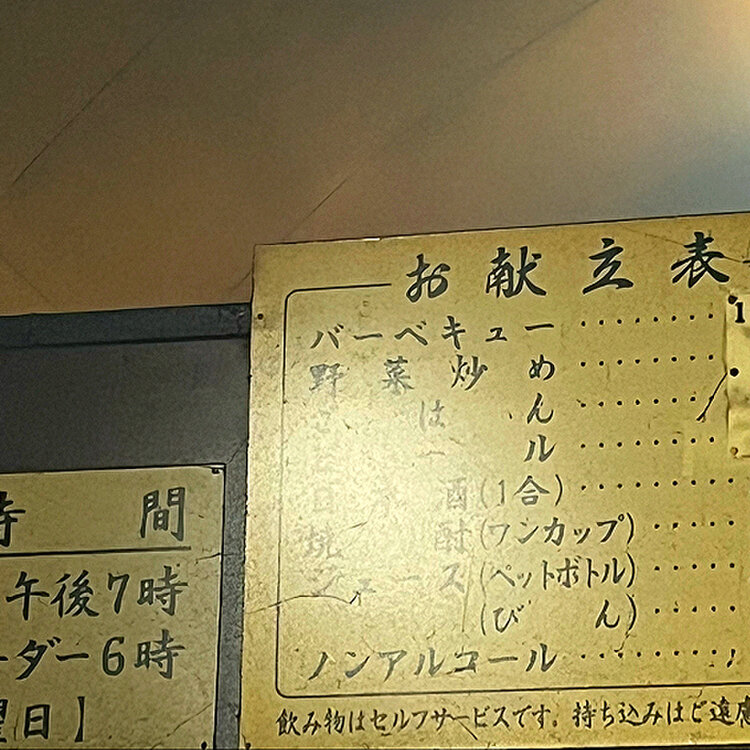 お献立表
バーベキュー
野菜炒め
ごはん
ビール
日酒(1合)
焼酎(ワンカップ)
ジュース(ペットボトル)
(びん)
ノンアルコール
飲み物はセルフサービスです。持ち込みはご遠慮
時間
午後7時
ーダー6時
曜日】